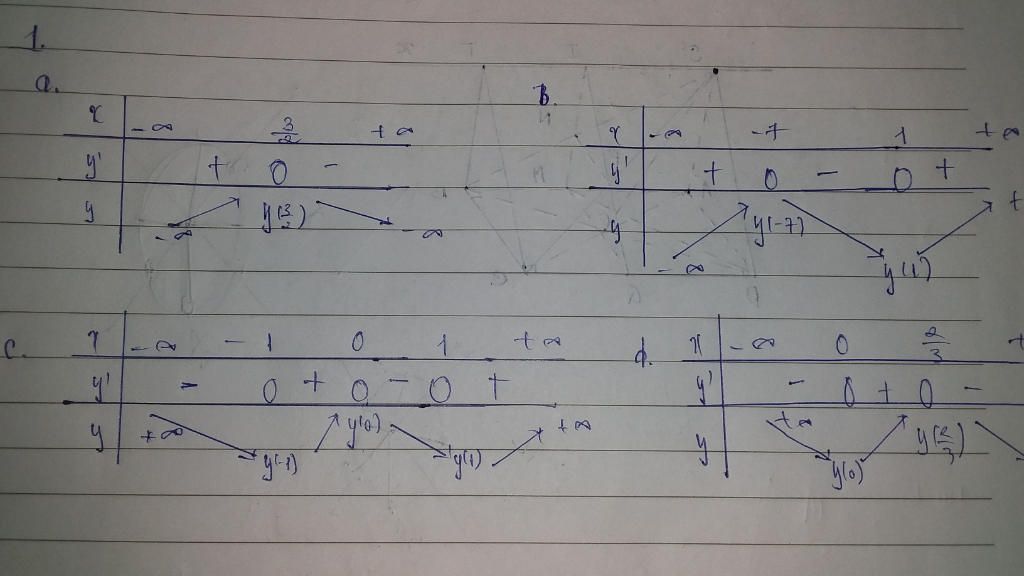 1.
a.
x -∞ 3/2 +∞
y' + 0 -
y -∞ y(3/2) -∞
b.
x -∞ -7 1 +∞
y' + 0 - 0 +
y -∞ y(-7) y(1) +
c.
x -∞ -1 0 1 +∞
y' - 0 + 0 - 0 +
y +∞ y(-1) y(0) y(1) +∞
d.
x -∞ 0 2/3 +
y' - 0 + 0 -
y +∞ y(0) y(2/3)